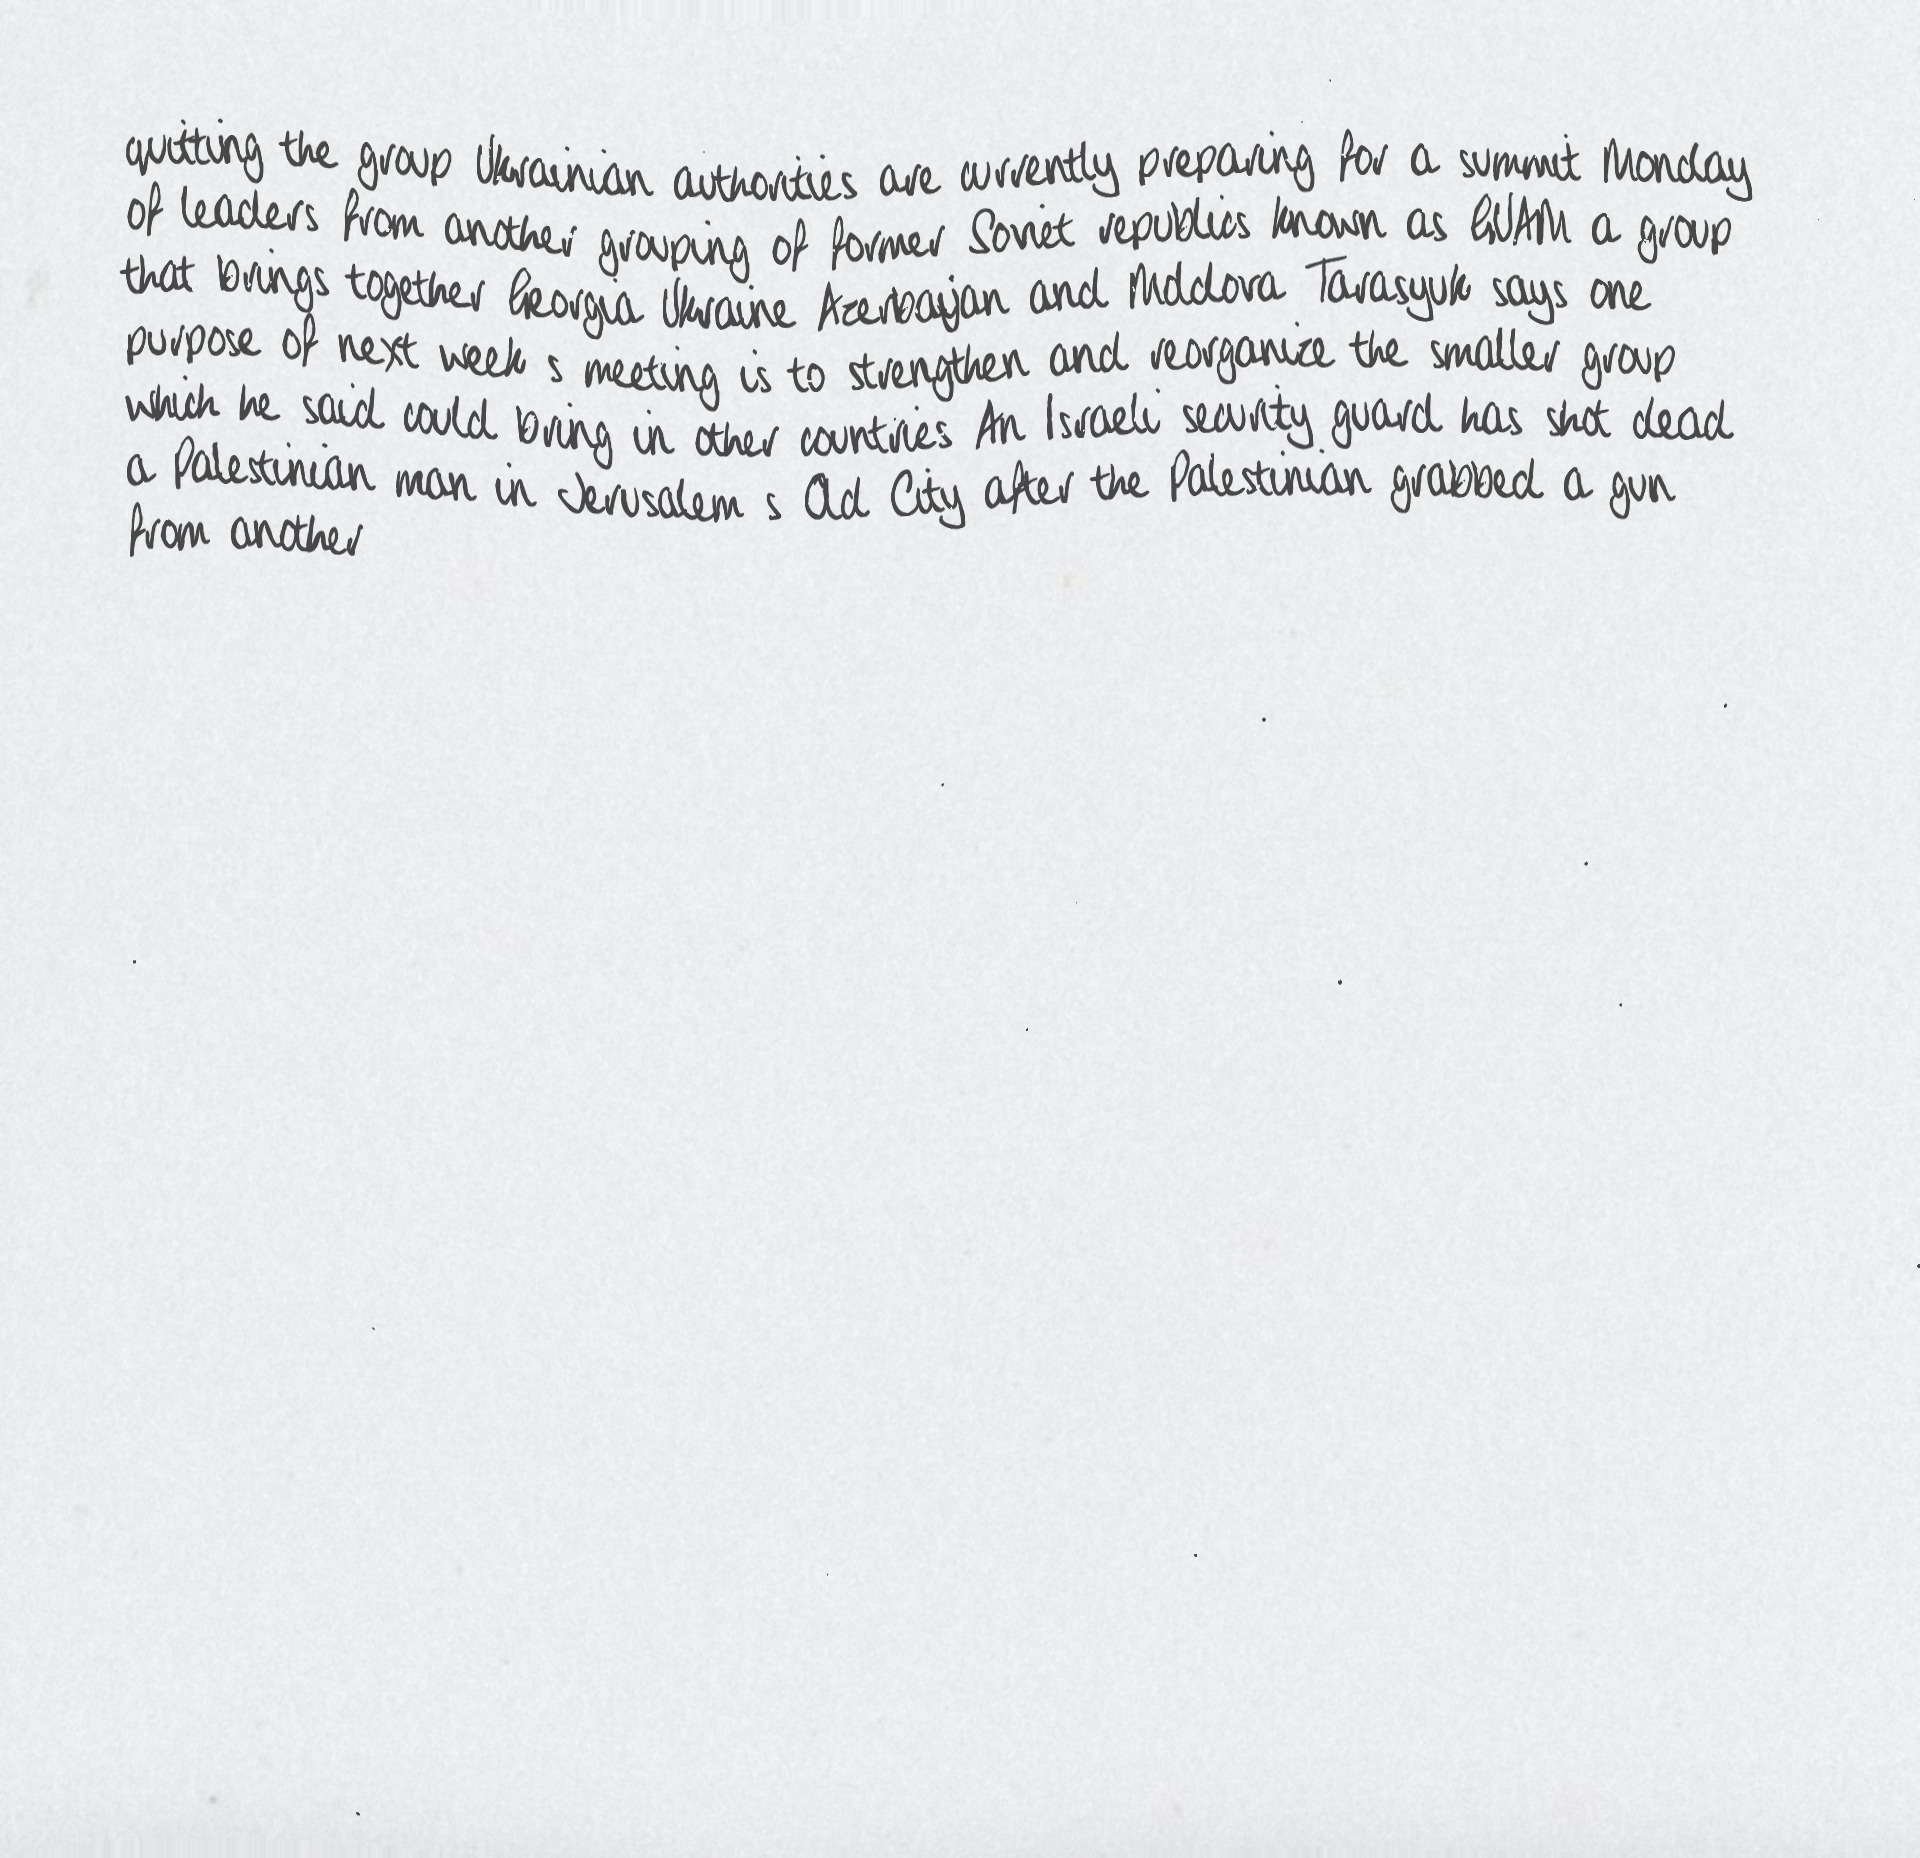 quitting the group Ukrainian authorities are currently preparing for a summit Monday
of leaders from another grouping of former Soviet republics known as GUAM a group
that brings together Georgia Ukraine Azerbaijan and Moldova Tarasyuk says one
purpose of next week s meeting is to strengthen and reorganize the smaller group
which he said could bring in other countries An Israeli security guard has shot dead
a Palestinian man in Jerusalem s Old City after the Palestinian grabbed a gun
from another